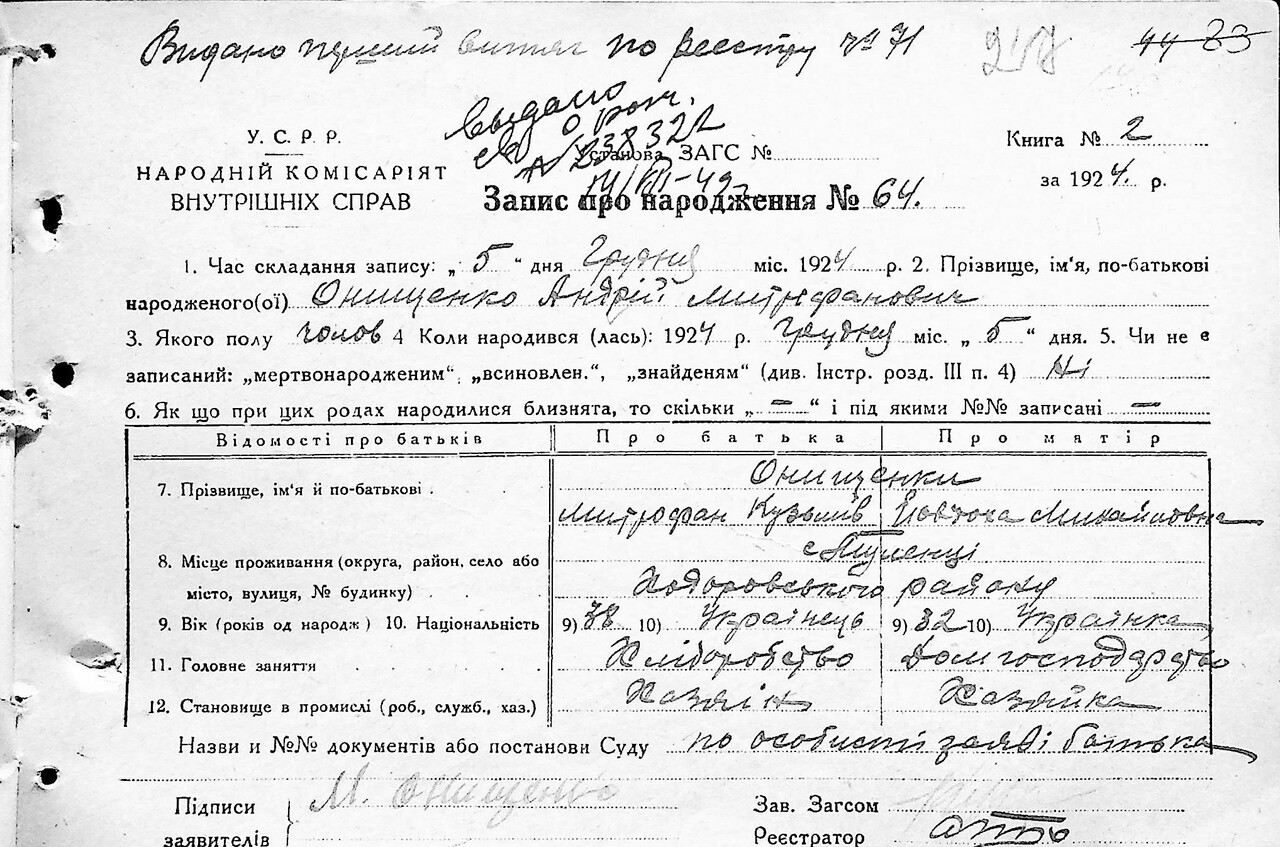 Видано перший витяг по реєстру № 71
218
44 83
Выдано
св. о рож.
У. С. Р. Р.
№ 238322
Установа ЗАГС №
Книга № 2
НАРОДНІЙ КОМІСАРІЯТ
ВНУТРІШНІХ СПРАВ
за 1924. р.
Запис про народження № 64.
1. Час складання запису: „ 5 “ дня Грудня міс. 1924 р. 2. Прізвище, ім'я, по-батькові
народженого(ої) Онищенко Андрій Митрофанович
3. Якого полу чолов 4 Коли народився (лась): 1924 р. Грудня міс. „ 5 “ дня. 5. Чи не є
записаний: „мертвонародженим“, „всиновлен.“, „знайденям“ (див. Інстр. розд. III п. 4) Ні
6. Як що при цих родах народилися близнята, то скільки „ — “ і під якими №№ записані —
Відомості про батьків Про батька Про матір
Онищенки
7. Прізвище, ім'я й по-батькові .
Митрофан Кузьмів Йовдоха Михайловна
8. Місце проживання (округа, район, село або
місто, вулиця, № будинку) . Ходоровського району
9. Вік (років од народж) 10. Національність 9) 38 10) Українець 9) 32 10) Українка
11. Головне заняття Хліборобство Домгосподарство
12. Становище в промислі (роб., служб., хаз.) Хазяїн Хазяйка
Назви и №№ документів або постанови Суду по особистій заяві батька
Підписи М. Онищенко Зав. Загсом
заявителів Реєстратор